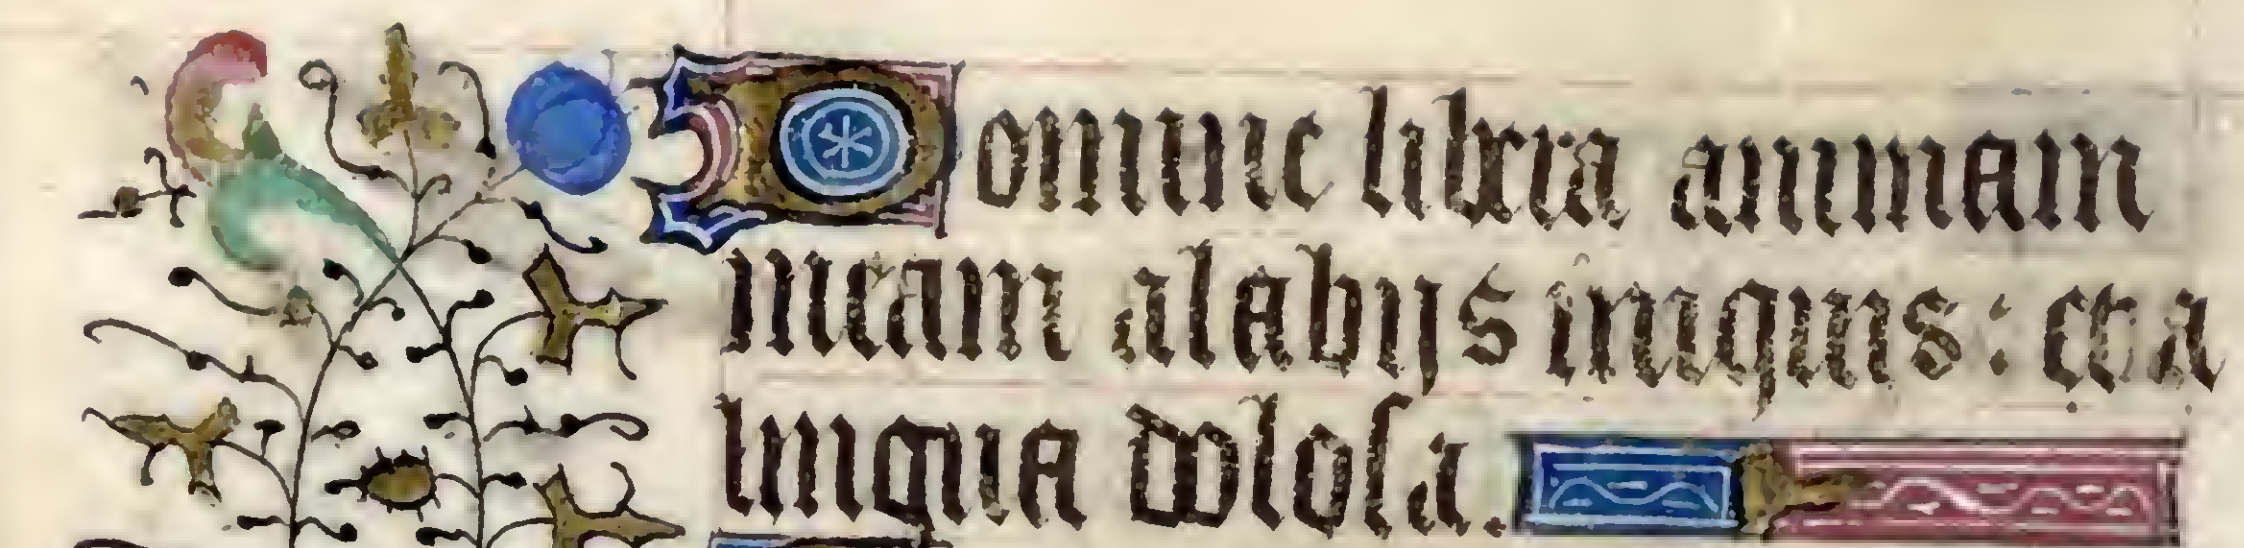 Domine libera animam
meam alabijs iniquis: et a
lingua dolosa.